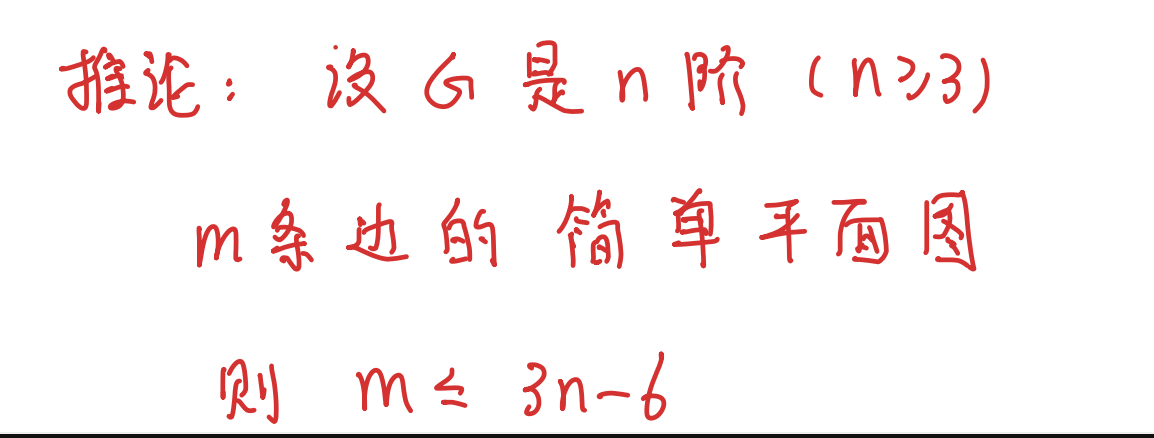 推论：设 G 是 n 阶（n≥3）
m条边的 简单平面图
则 m ≤ 3n-6